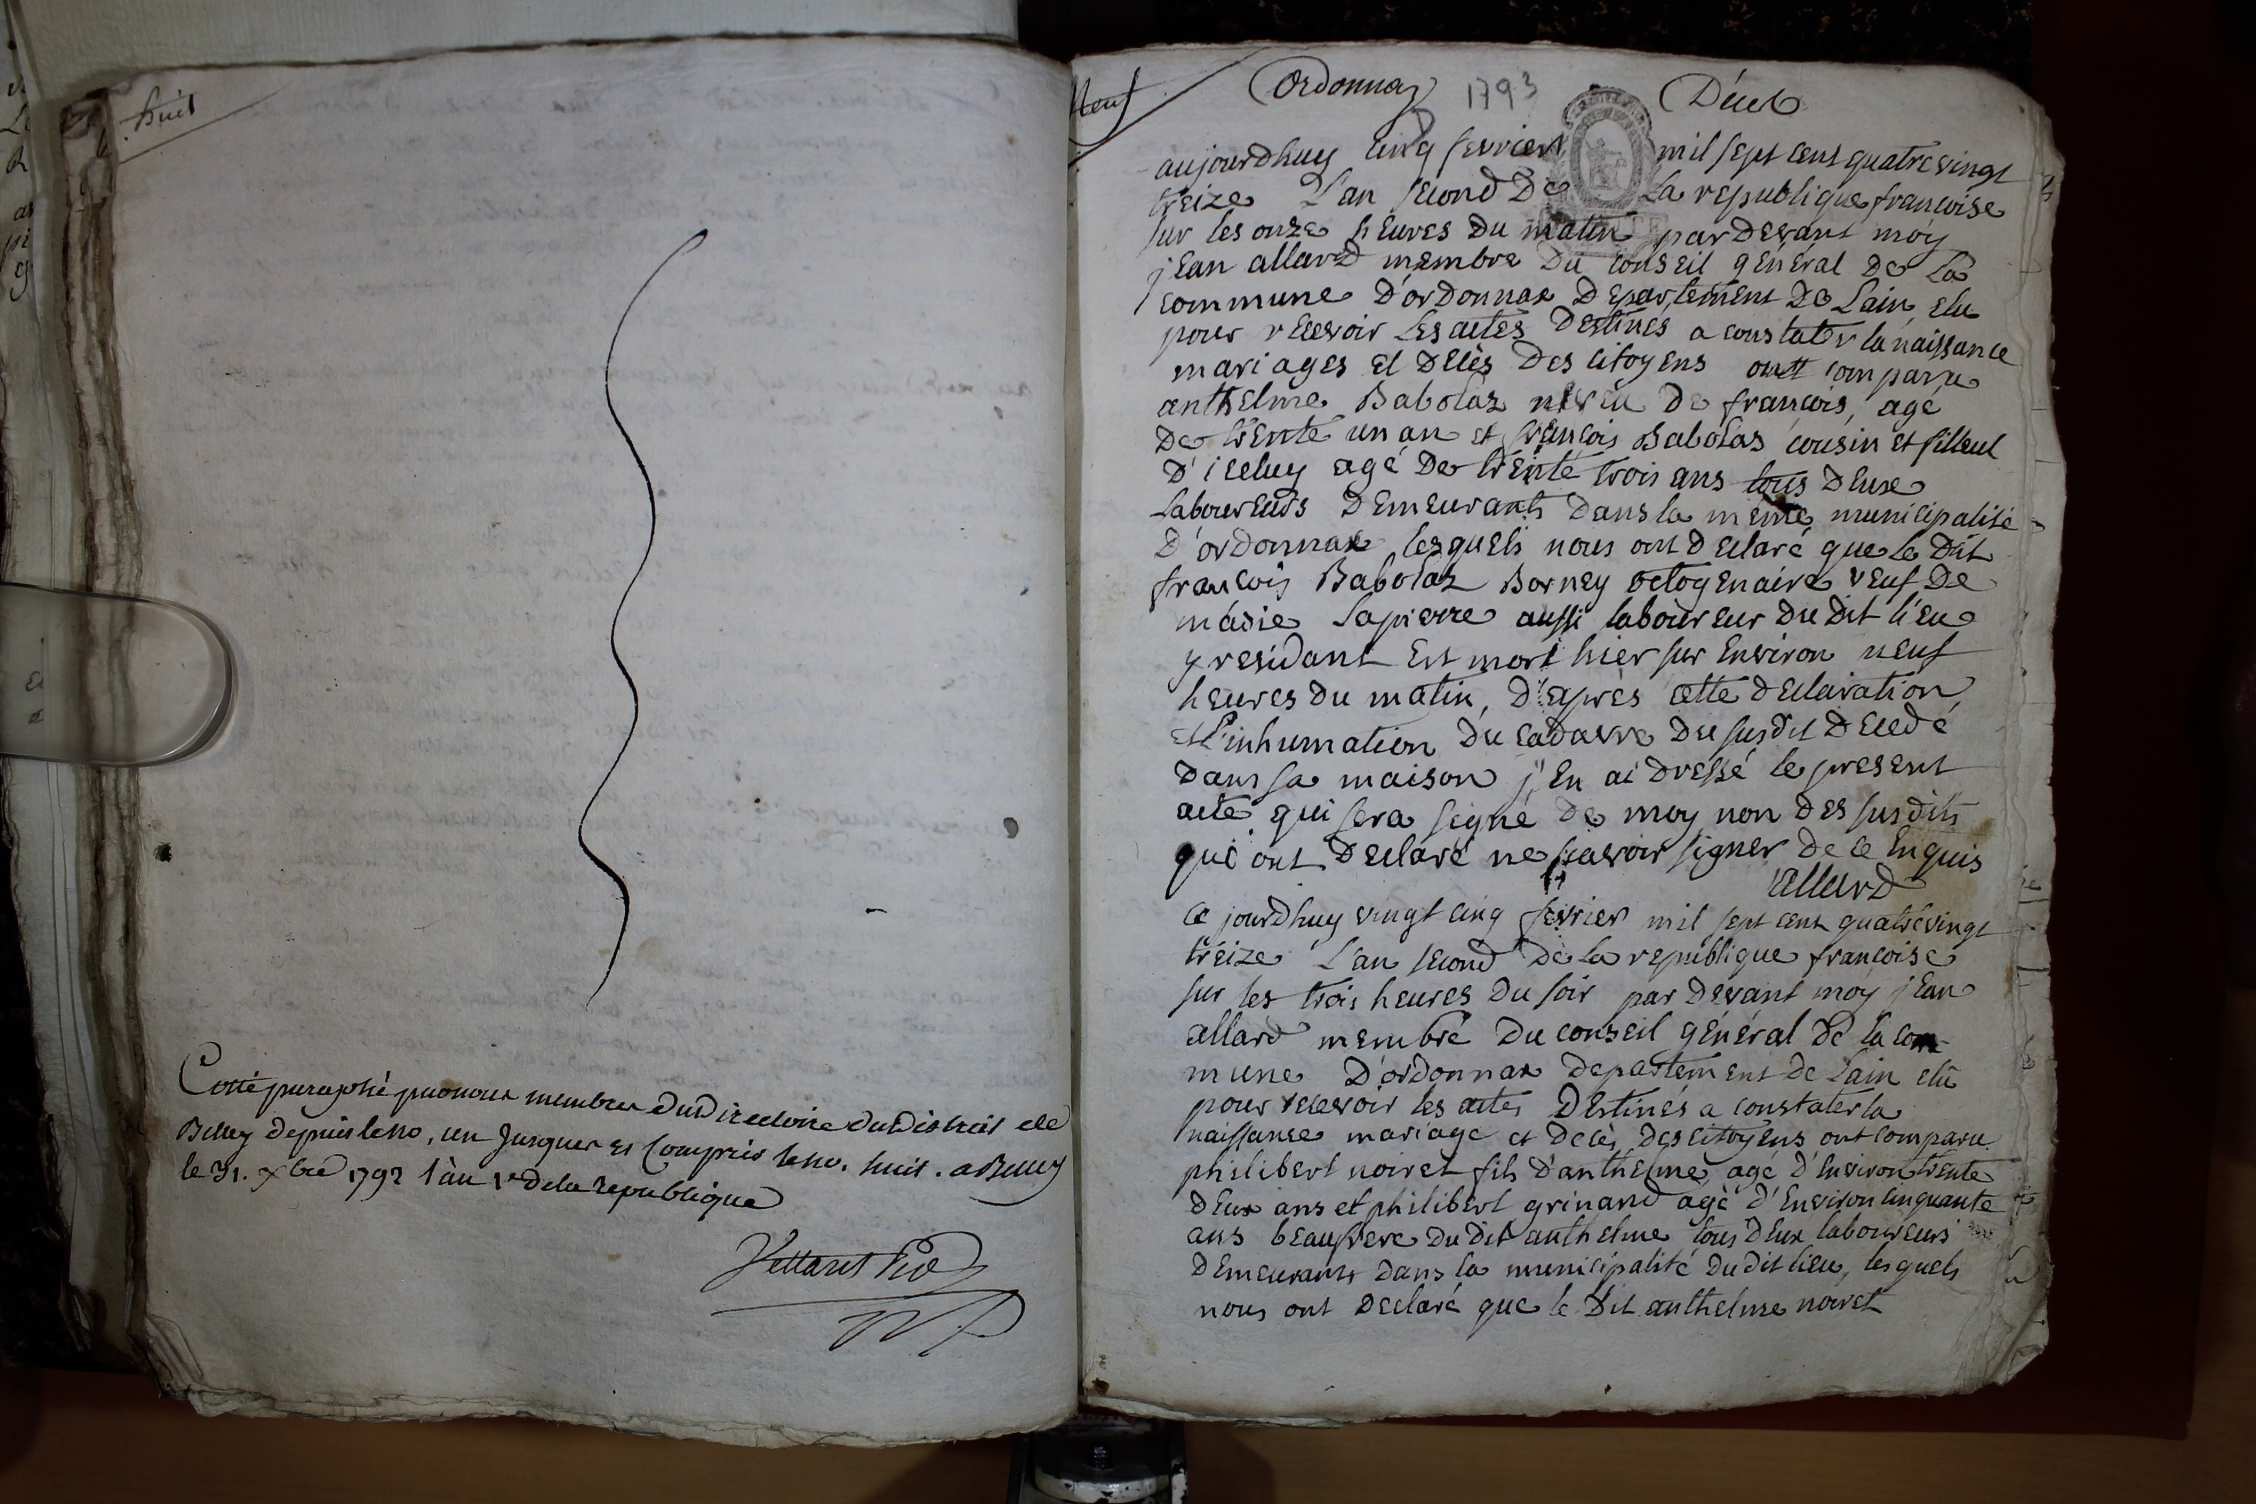 huit
Cotté paraphé par nous membre du Directoire du District de
Belley depuis le no. un jusques et compris le no. huit. a Belley
le 31. xbre 1792 l'an 1er de la republique
neuf
Ordonnaz 1793 Décet
aujourdhuy cinq fevrier mil sept cent quatrevingt
treize L'an second De La republique francoise
sur les onze heures Du matin par Devant moy
jean allard membre Du conseil général De La
commune D'ordonnax Departement De Lain elu
pour recevoir Les actes Destinés a constater la naissance
mariages et Decès Des citoyens ont comparu
anthelme Babolaz neveu De francois, agé
De trente un an et françois Babolas cousin et filleul
D'iceluy agé De trente trois ans tous Deux
Laboureurs Demeurants Dans la même municipalité
D'ordonnax lesquels nous ont Declaré que le Dit
francois Babolaz Borney octogenaire veuf De
marie Lapierre aussi laboureur Du Dit lieu
y residant Est mort hier sur Environ neuf
heures Du matin, D'après cette Declaration,
et l'inhumation Du cadavre Du susdit Decedé
Dans sa maison j'En ai Dressé le present
acte qui sera signé De moy non Des susdits
qui ont Declaré ne scavoir signer De ce Enquis
allard
ce jourdhuy vingt cinq fevrier mil sept cent quatrevingt
treize L'an second De La republique francoise
sur les trois heures Du soir par Devant moy jean
allard membre Du conseil général De la com
mune D'ordonnax Departement De Lain elu
pour recevoir les actes Destinés a constater la
naissance mariage et Decès Des citoyens ont comparu
philibert noiret fils D'anthelme, agé D'Environ trente
Deux ans et philibert grinand agé D'Environ cinquante
ans beaufrere Du Dit anthelme tous Deux laboureurs
Demeurants Dans la municipalité Du dit lieu, lesquels
nous ont Declaré que le Dit anthelme noiret